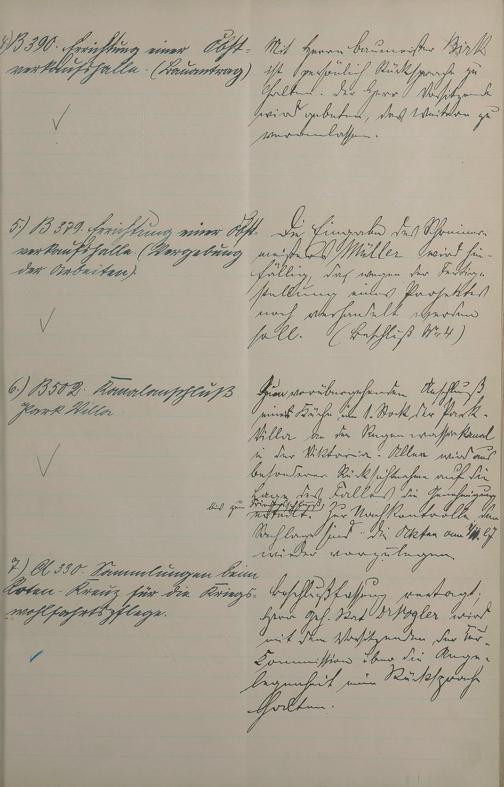 4.) B 390. Errichtung einer Obst-
verkaufshalle. (Bauantrag)
Mit Herrn Baumeister Birk
ist persönlich Rücksprache zu
halten. Der Herr Vorsitzende
wird gebeten, das Weitere zu
veranlassen.
5.) B 379. Errichtung einer Obst-
verkaufshalle (Vergebung
der Arbeiten)
Die Eingabe des Schreiner-
meisters Müller wird hin-
fällig, da wegen der Fertig-
stellung eines Projektes
noch verhandelt werden
soll. (Beschluß Nr. 4)
6.) B 502. Kanalanschluß
Park Villa
Zum vorübergehenden Anschluß
einer Küche im 1. Stock der Park-
Villa an den Regenwasserkanal
in der Viktoria-Allee wird aus
besonderer Rücksichtnahme auf die
Lage des Falles die Genehmigung
bis zum
erteilt. Zur Nachkontrolle der
Sachlage sind die Akten am
wieder vorzulegen.
7.) A 330. Sammlungen beim
Roten-Kreuz für die Kriegs-
wohlfahrtspflege.
Beschlußfassung vertagt;
Herr Geh. Rat Dr Vogler wird
mit dem Vorsitzenden der Kur-
Kommission über die Ange-
legenheit eine Rücksprache
halten.